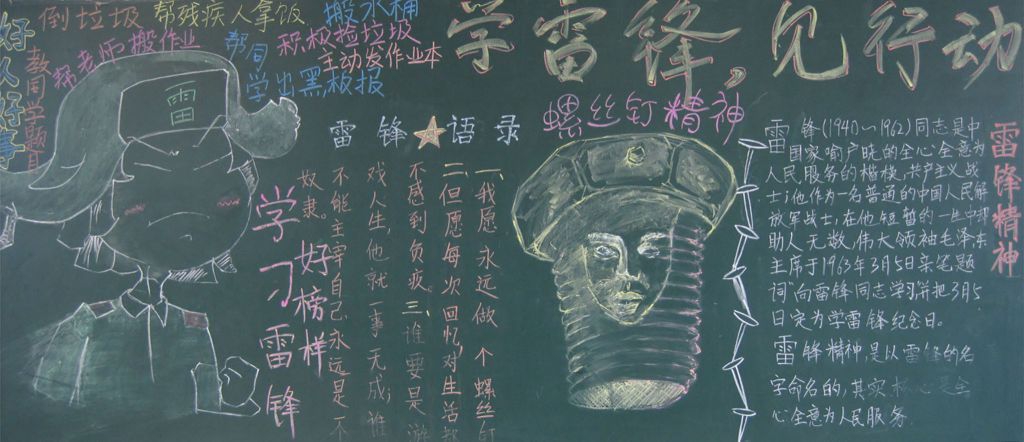 学雷锋，见行动
倒垃圾
帮残疾人拿饭
搬水桶
好人好事
教同学题目
帮老师搬作业
帮同学出黑板报
积极捡垃圾
主动发作业本
雷
学习雷锋
好榜样
雷锋★语录
一、我愿永远做一个螺丝钉
二、但愿每次回忆，对生活都
不感到负疚。三、谁要是游
戏人生，他就一事无成；谁
不能主宰自己，永远是一个
奴隶。
螺丝钉精神
雷锋(1940～1962)同志是中
国家喻户晓的全心全意为
人民服务的楷模，共产主义战
士；他作为一名普通的中国人民解
放军战士，在他短暂的一生中帮
助人无数，伟大领袖毛泽东
主席于1963年3月5日亲笔题
词“向雷锋同志学习”，并把3月5
日定为学雷锋纪念日。
雷锋精神，是以雷锋的名
字命名的，其实核心是全
心全意为人民服务
雷锋精神